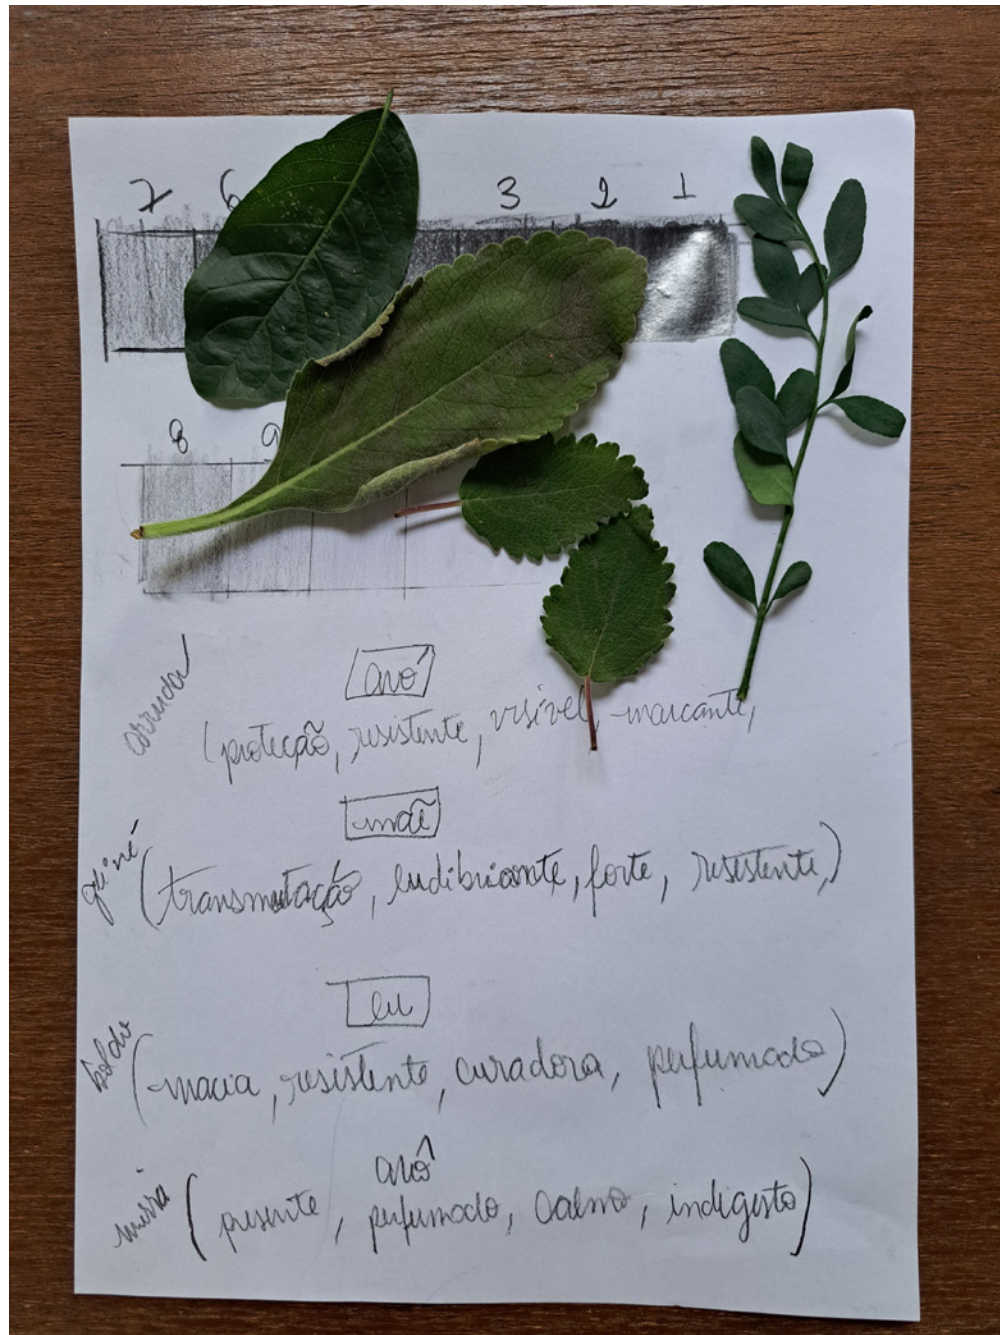 7 6 3 2 1
8 9
arruda
avó
(proteção, resistente, visível, marcante,
mãe
guiné (transmutação, ludibriante, forte, resistente,)
eu
boldo (macia, resistente, curadora, perfumada)
avô
mirra (presente, perfumado, calmo, indigesto)